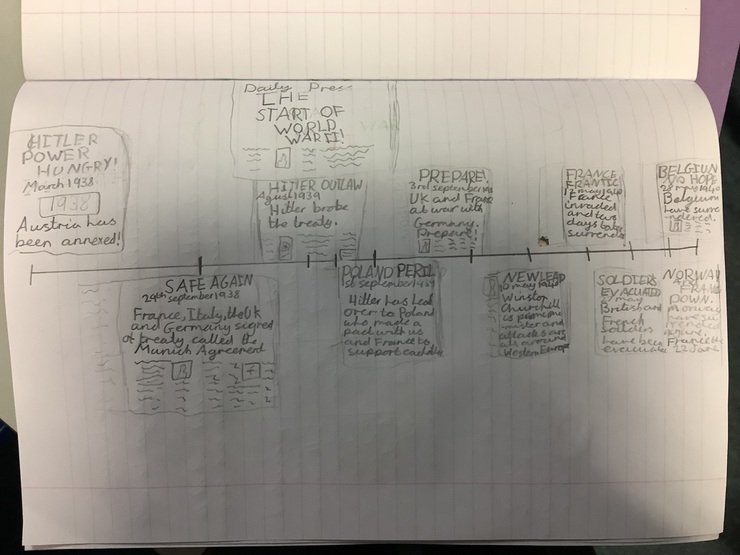 Daily Press
THE
START OF
WORLD
WAR II!
HITLER
POWER
HUNGRY!
March 1938
1938
Austria has
been annexed!
SAFE AGAIN
29th september 1938
France, Italy, the UK
and Germany signed
a treaty called the
Munich Agreement
HITLER OUTLAW
1939
Hitler broke
the treaty.
POLAND PERIL
september 1939
Hitler has
over to Poland
who made a
pact with us
and France to
support
PREPARE!
3rd september
UK and France
at war with
Germany.
Prepare!
NEW LEAD
10 may 1940
Winston
Churchill
is prime
minister and
attacks are
all around
Western Europe
FRANCE
FRANTIC
12 may 1940
France
invaded
and two
days
surrends
SOLDIERS
EVACUATED
may
British and
French
soldiers
have been
BELGIUM
NO HOPE
28 may 1940
Belgium
have surre
ndered.
NORWAY
AND FRANCE
DOWN.
norway
have su
rrended
and
France
22 June